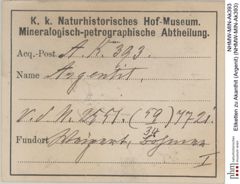 K. k. Naturhistorisches Hof-Museum.
Mineralogisch-petrographische Abtheilung.
Acq.-Post. A. k. 393.
Name Argentit.
Fundort Weipert, Böhmen
I
NHMW-MIN-Ak393
Etiketten zu Akanthit (Argentit) (NHMW-MIN-Ak393)
nhm